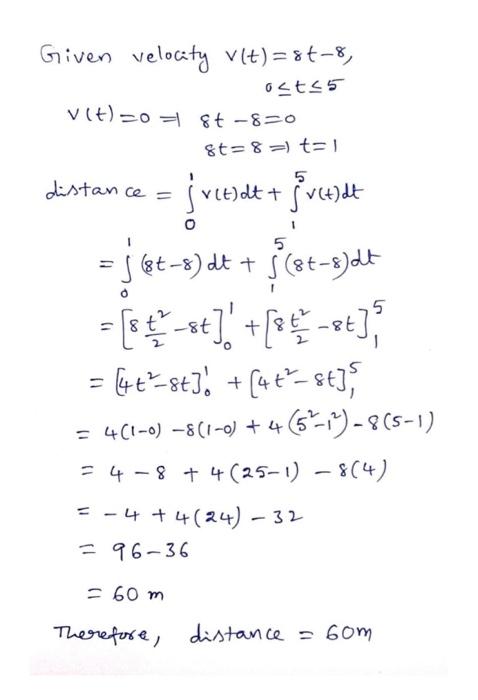 Given velocity v(t) = 8t-8,
0 ≤ t ≤ 5
v(t) = 0 ⇒ 8t - 8 = 0
8t = 8 ⇒ t = 1
distance = ∫₀¹ v(t)dt + ∫₁⁵ v(t)dt
= ∫₀¹ (8t-8) dt + ∫₁⁵ (8t-8)dt
= [8 t²/2 - 8t]₀¹ + [8 t²/2 - 8t]₁⁵
= [4t²-8t]₀¹ + [4t²-8t]₁⁵
= 4(1-0) - 8(1-0) + 4(5²-1²) - 8(5-1)
= 4 - 8 + 4(25-1) - 8(4)
= -4 + 4(24) - 32
= 96-36
= 60 m
Therefore, distance = 60m